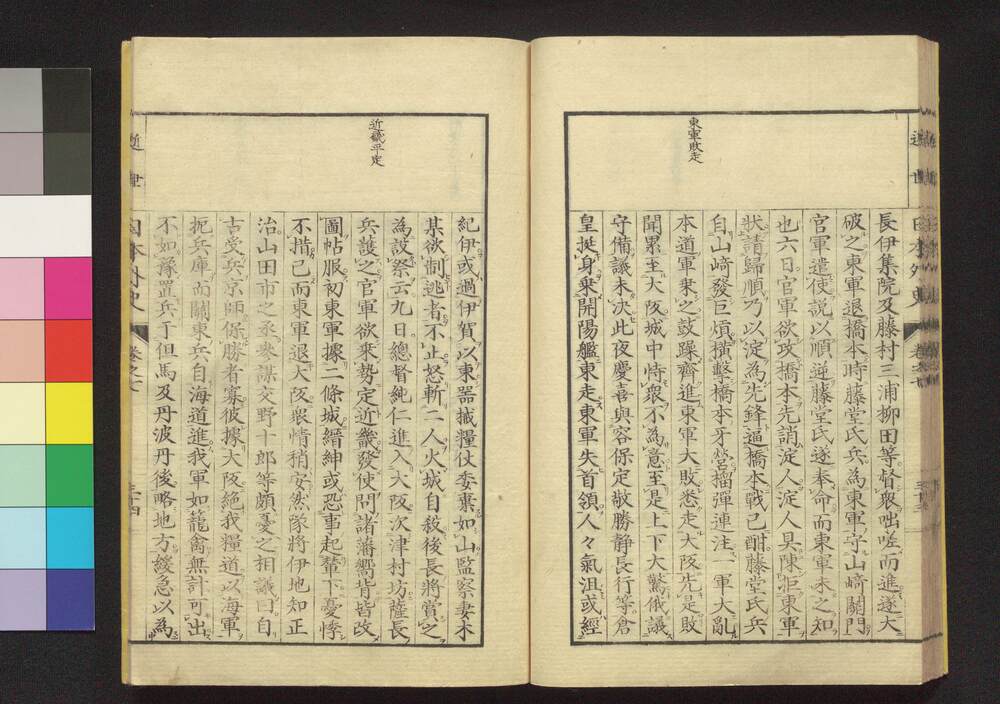 東軍敗走
長伊集院及藤村三浦柳田等督衆咄嗟而進遂大
破之東軍退橋本時藤堂氏兵為東軍守山崎關門
官軍遣使説以順逆藤堂氏遂奉命而東軍未之知
也六日官軍欲攻橋本先誚淀人淀人具陳拒東軍
狀請歸順乃以淀為先鋒逼橋本戰已酣藤堂氏兵
自山崎發巨熕橫擊橋本牙營榴彈連注一軍大亂
本道軍乘之鼓躁齊進東軍大敗悉走大阪先是敗
聞累至大阪城中恃衆不為意至是上下大驚俄議
守備議未決此夜慶喜與容保定敬勝靜長行等倉
皇挺身乘開陽艦東走東軍失首領人々氣沮或經
近畿平定
紀伊或過伊賀以東器械糧仗委棄如山監察妻木
某欲制逃者不止怒斬二人火城自殺後長將賞之
為設祭云九日總督純仁進入大阪次津村坊薩長
兵護之官軍欲乘勢定近畿發使問諸藩嚮背皆改
圖帖服初東軍據二條城縉紳或恐事起輦下憂悸
不措已而東軍退大阪衆情稍安然隊將伊地知正
治山田市之丞參謀交野十郎等頗憂之相議曰自
古受兵京師保勝者寡彼據大阪絕我糧道以海軍
扼兵庫而關東兵自海道進我軍如籠禽無計可出
不如豫置兵于但馬及丹波丹後略地方緩急以為
近世
日本外史
卷之七